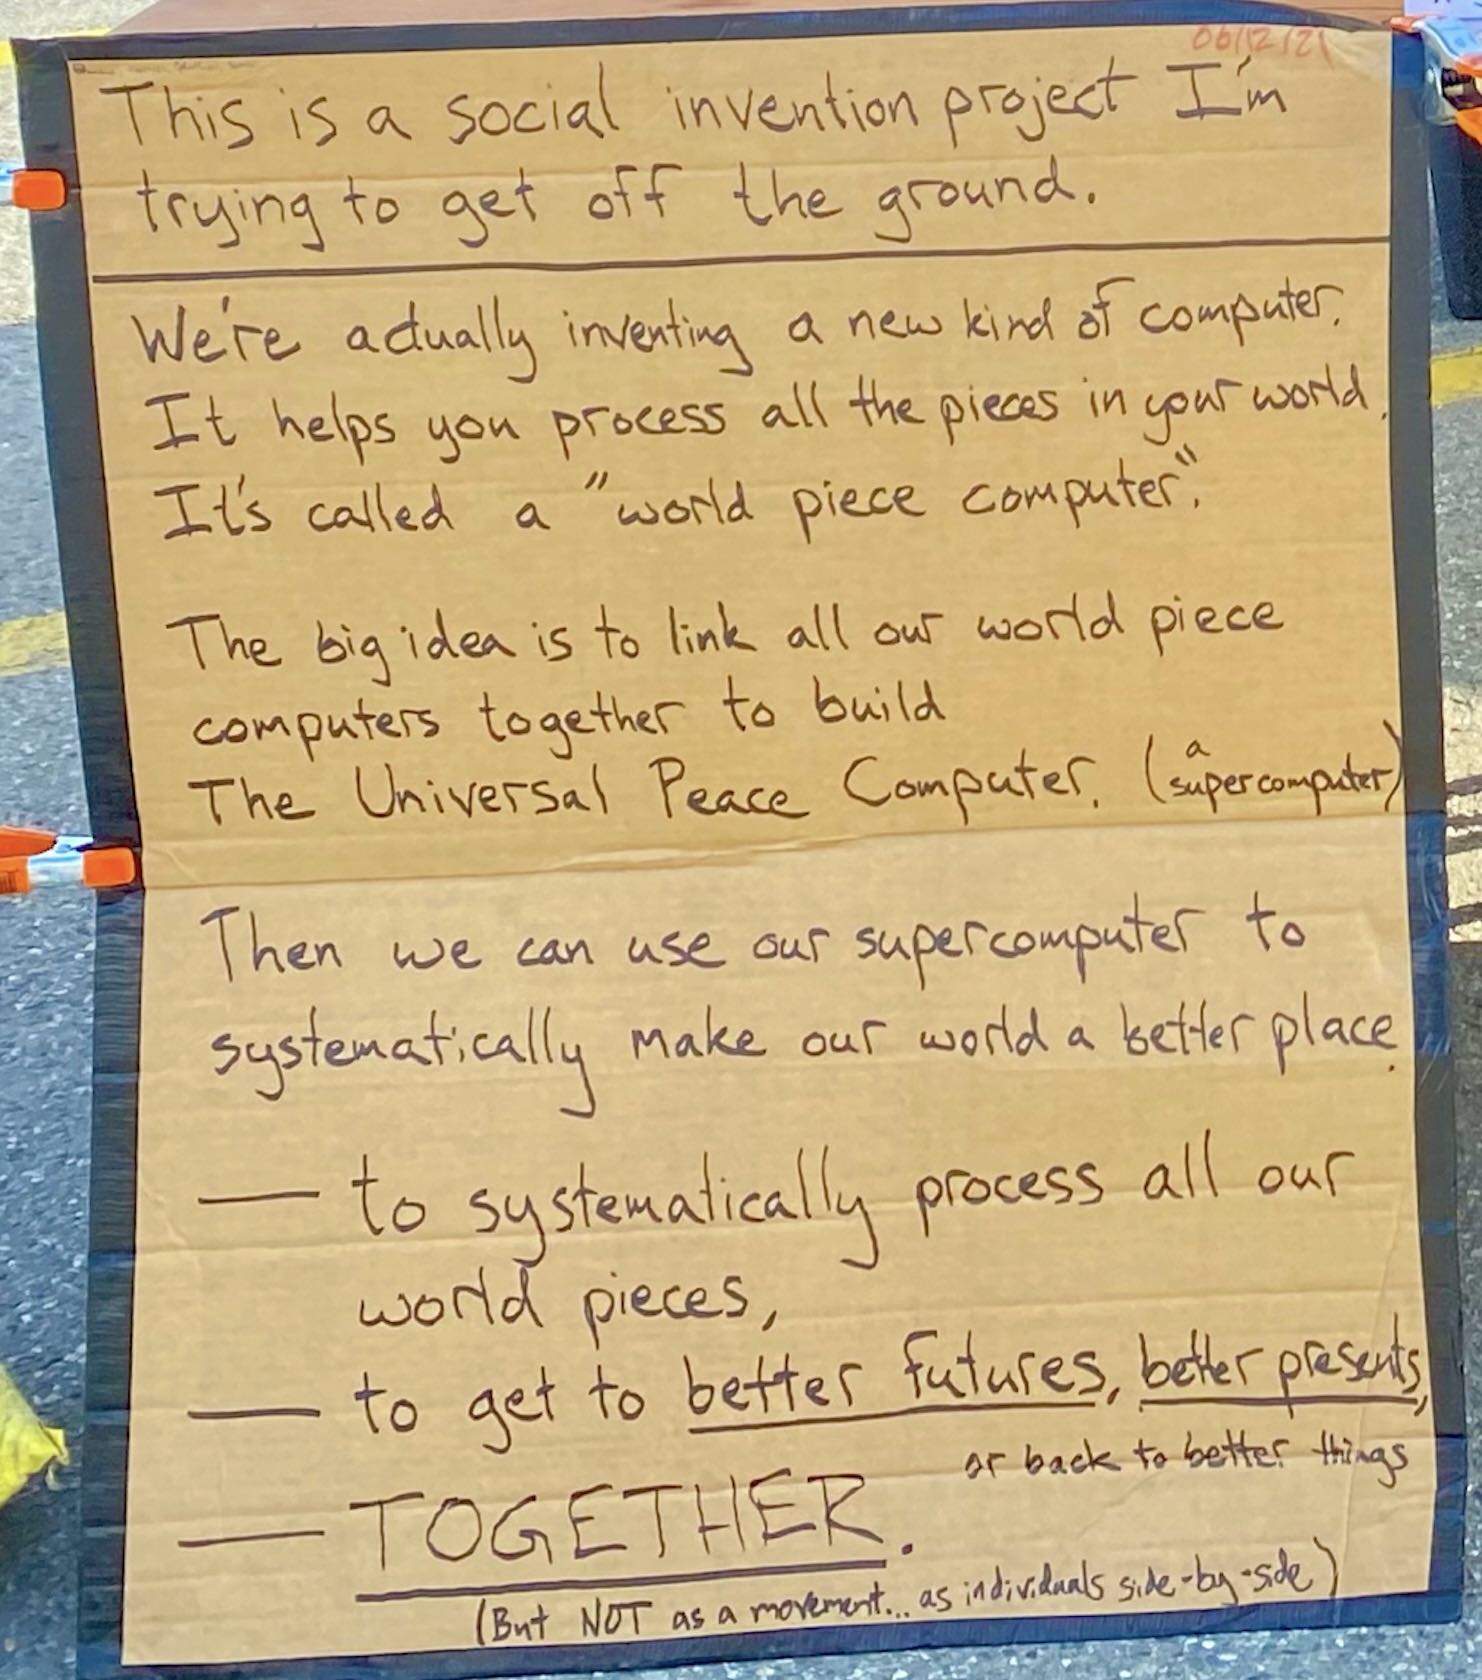 06/12/21
This is a social invention project I'm
trying to get off the ground.
We're actually inventing a new kind of computer.
It helps you process all the pieces in your world.
It's called a "world piece computer".
The big idea is to link all our world piece
computers together to build
The Universal Peace Computer. (a supercomputer)
Then we can use our supercomputer to
systematically make our world a better place.
— to systematically process all our
world pieces,
— to get to better futures, better presents,
or back to better things
— TOGETHER.
(But NOT as a movement... as individuals side-by-side)